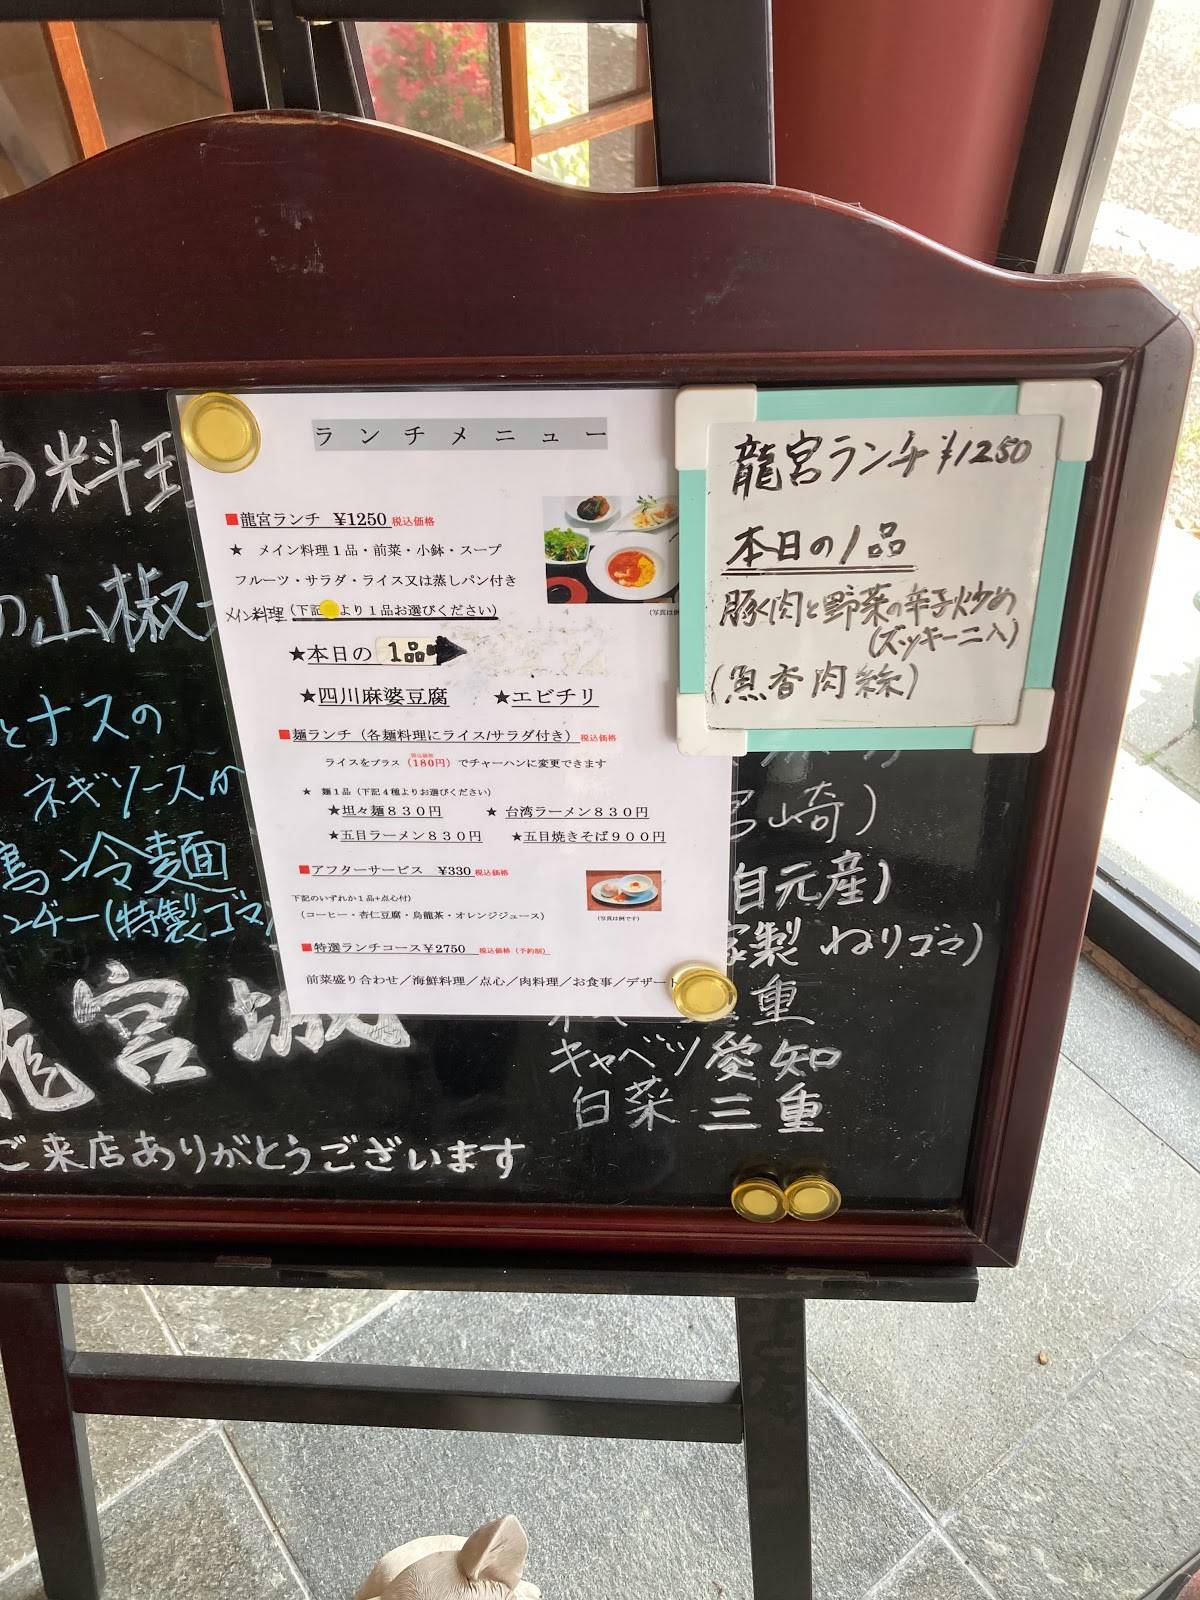 ランチメニュー
■龍宮ランチ ¥1250 税込価格
★ メイン料理1品・前菜・小鉢・スープ
フルーツ・サラダ・ライス又は蒸しパン付き
メイン料理 (下記 より1品お選びください)
★本日の 1品
★四川麻婆豆腐 ★エビチリ
■麺ランチ (各麺料理にライス/サラダ付き) 税込価格
ライスをプラス(180円)でチャーハンに変更できます
★ 麺1品 (下記4種よりお選びください)
★坦々麺830円 ★ 台湾ラーメン830円
★五目ラーメン830円 ★五目焼きそば900円
■アフターサービス ¥330 税込価格
下記のいずれか1品+点心付)
(コーヒー・杏仁豆腐・烏龍茶・オレンジジュース)
(写真は例です)
■特選ランチコース¥2750 税込価格 (予約制)
前菜盛り合わせ/海鮮料理/点心/肉料理/お食事/デザート
(写真は例
龍宮ランチ ¥1250
本日の1品
豚肉と野菜の辛子炒め
(ズッキーニ入)
(魚香肉絲)
料理
の山椒
とナスの
ネギソースか
冷麺
ンヂー(特製ゴマ
龍宮城
ご来店ありがとうございます
宮崎)
自元産)
家製 ねりゴマ)
重
キャベツ 愛知
白菜 三重